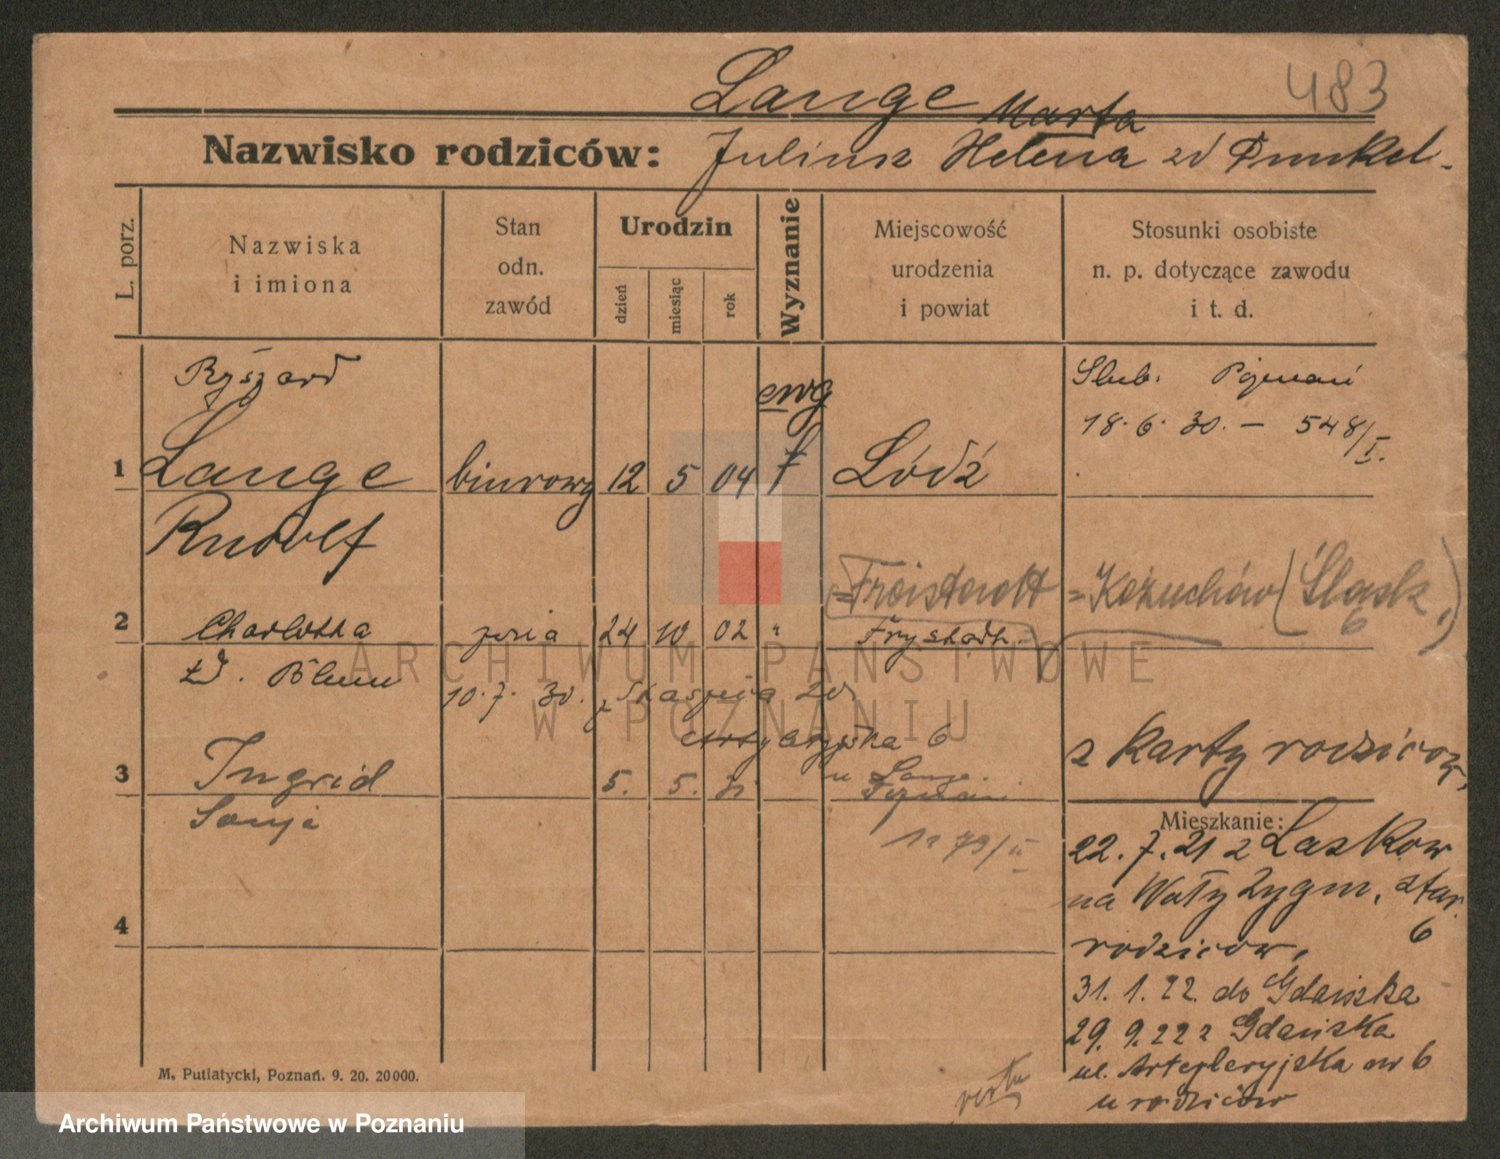 483
Lange
Marta
Nazwisko rodziców: Juliusz Helena zd Dunkel.
L. porz.
Nazwiska
i imiona
Stan
odn.
zawód
Urodzin
dzień
miesiąc
rok
Wyznanie
Miejscowość
urodzenia
i powiat
Stosunki osobiste
n. p. dotyczące zawodu
i t. d.
Ryszard
ewg
Ślub. Poznań
18. 6. 30. — 548/I.
1 Lange biurowy 12 5 04 Łódź
Rudolf
=Freistadt =Kożuchów (Śląsk)
2 Charlotta 24 10 02 " Frystadt
zd. Blum 10. 7. 30. z 20
Artyleryjska 6
z karty rodziców,
u Lange
3 Ingrid 5. 5. 31 Poznań
Sonja
79/II
Mieszkanie:
22. 7. 21 z Laskow
na Wały Zygm. star. 6
rodziców,
31. 1. 22. do Gdańska
29. 9. 22 z Gdańska
ul. Artyleryjska nr 6
u rodziców
4
verte
M. Putiatycki, Poznań. 9. 20. 20000.
ARCHIWUM PAŃSTWOWE
W POZNANIU
Archiwum Państwowe w Poznaniu